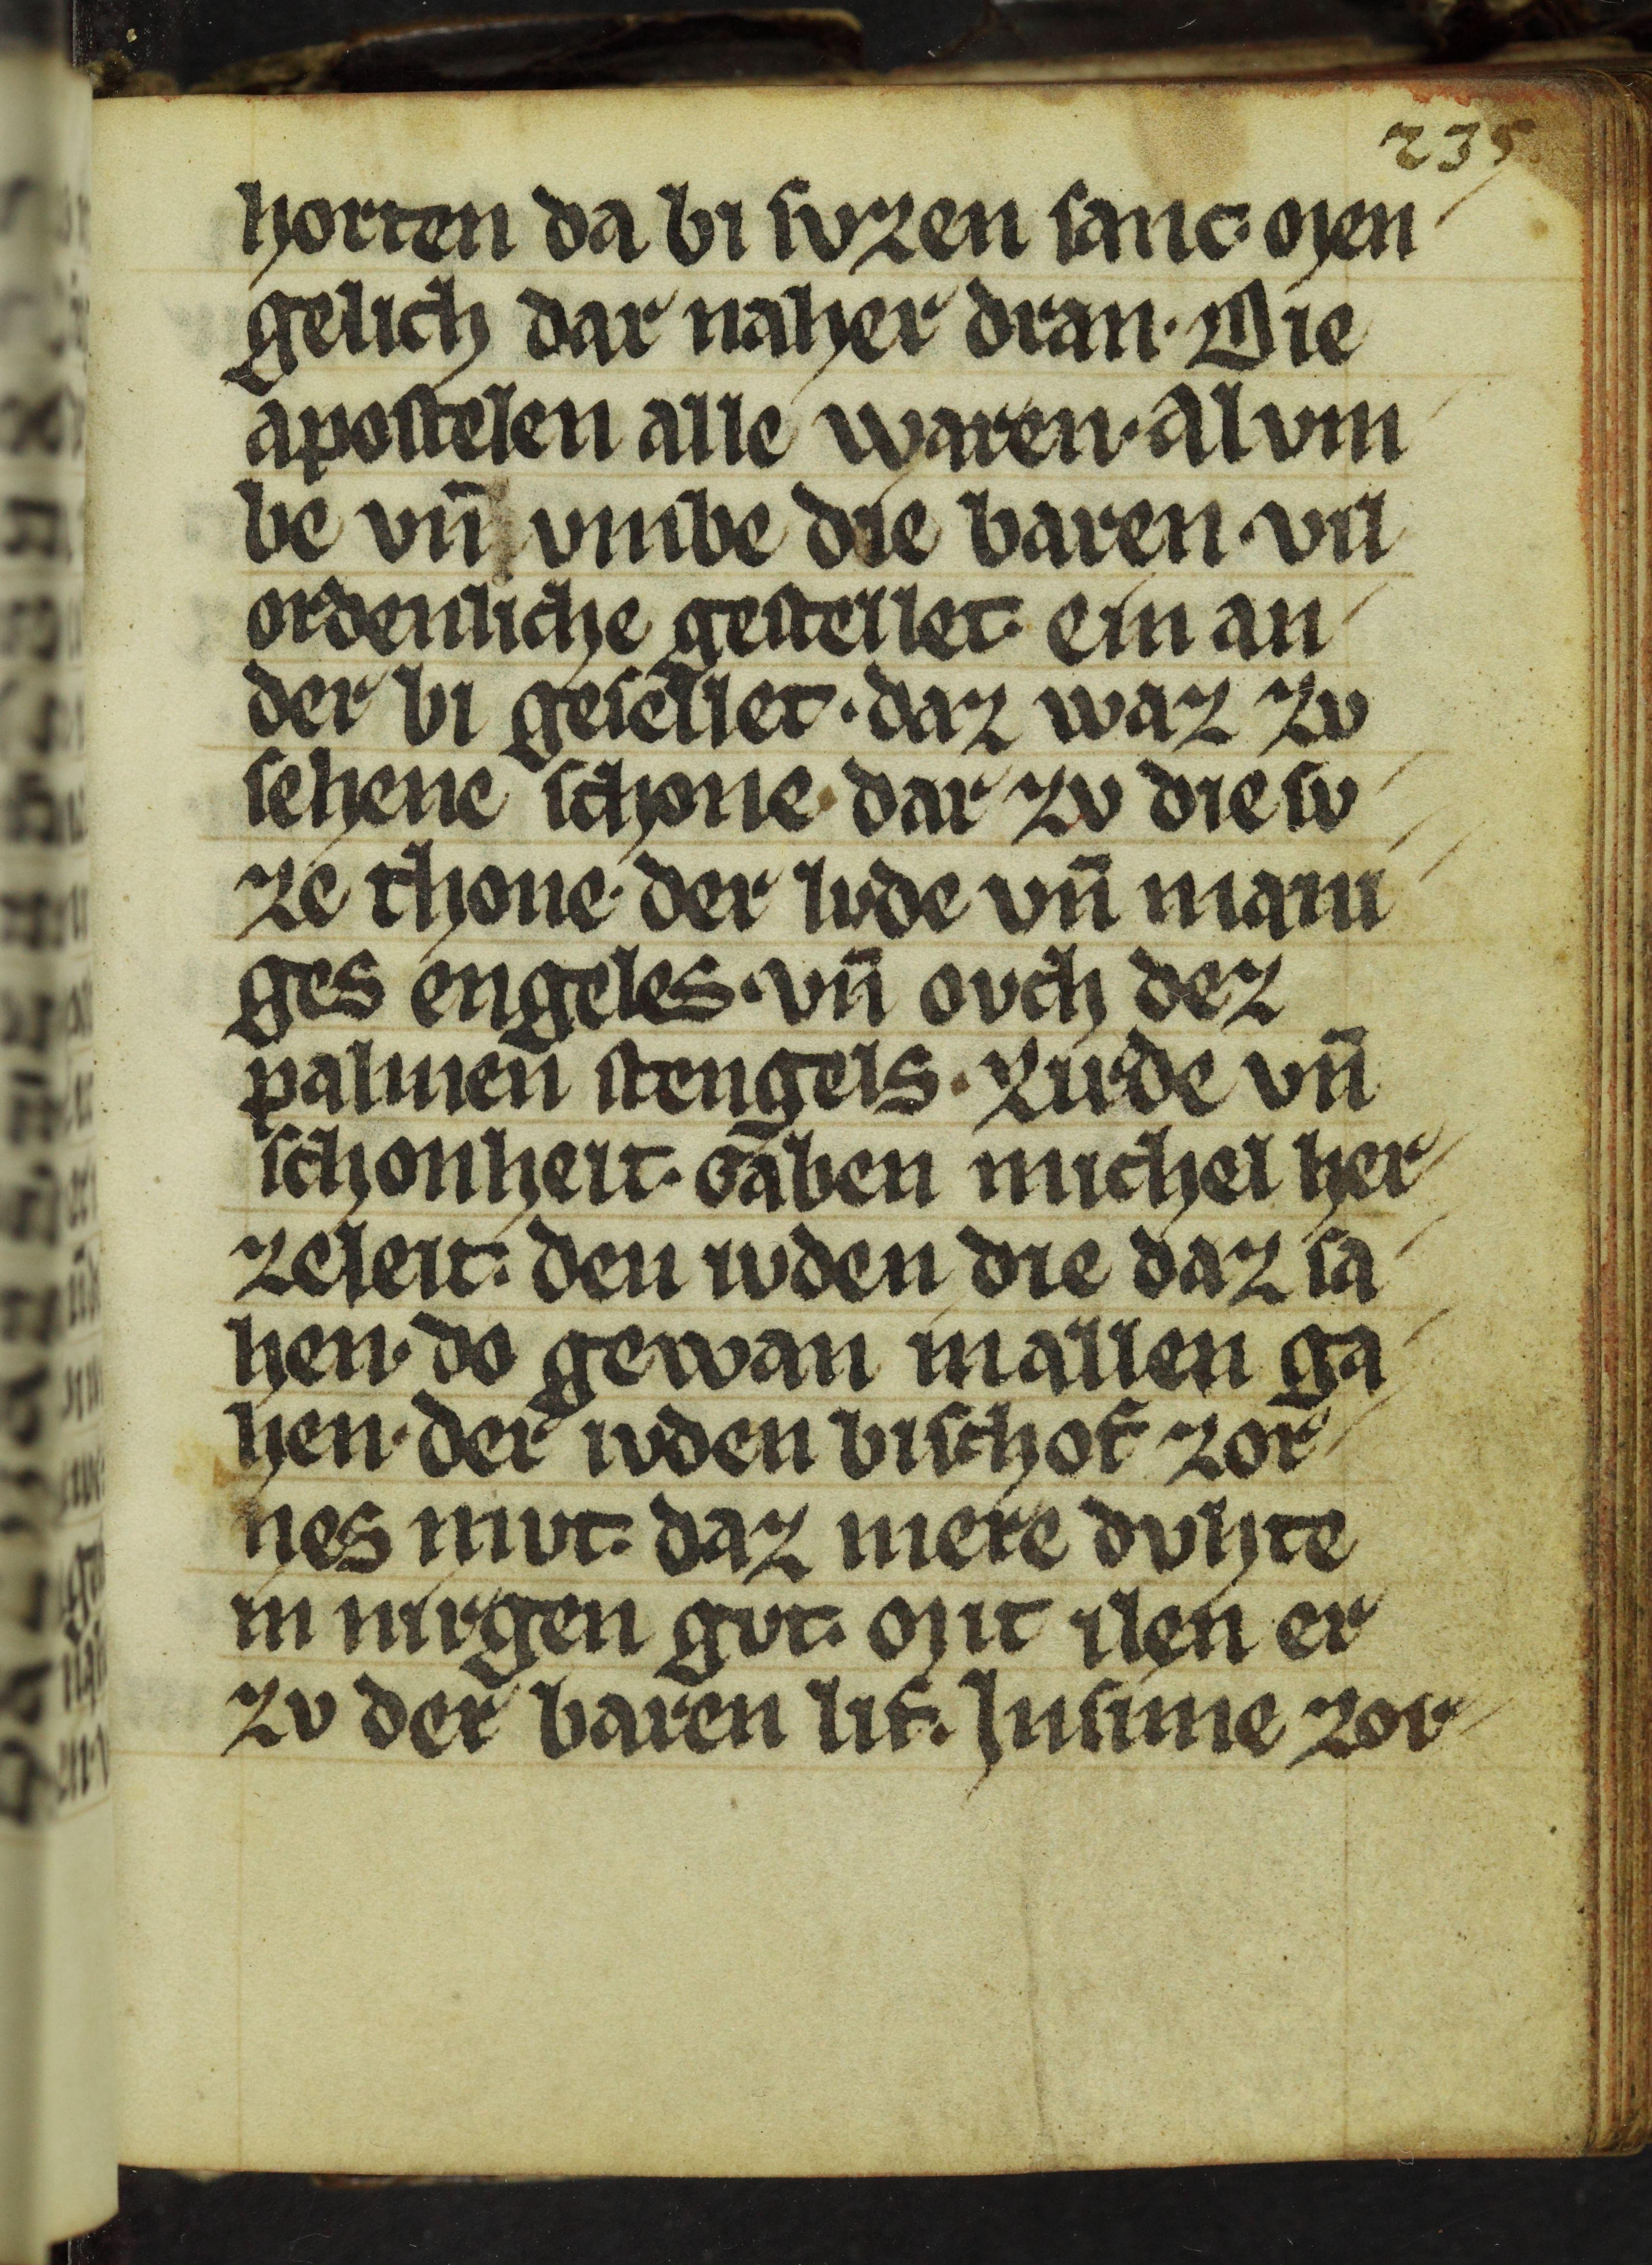 235
horten da bi svzen sanc. Men
gelich dar naher dran. Die
apostelen alle waren. Al vm
be vn̄ vmbe die baren. vil
ordenliche gestellet. ein an
der bi gesellet. daz waz zv
sehene schone. dar zv die sv
ze thone. der lvde vn̄ mani
ges engeles. vn̄ ovch dez
palmen stengels. Zirde vn̄
schonheit. Gaben michel her
zeleit. den ivden die daz sa
hen. do gewan in allen ga
hen. der ivden bischof zor
nes mvt. daz mere dvhte
in nirgen gvt. Mit ilen er
zv der baren lif. In sime zor